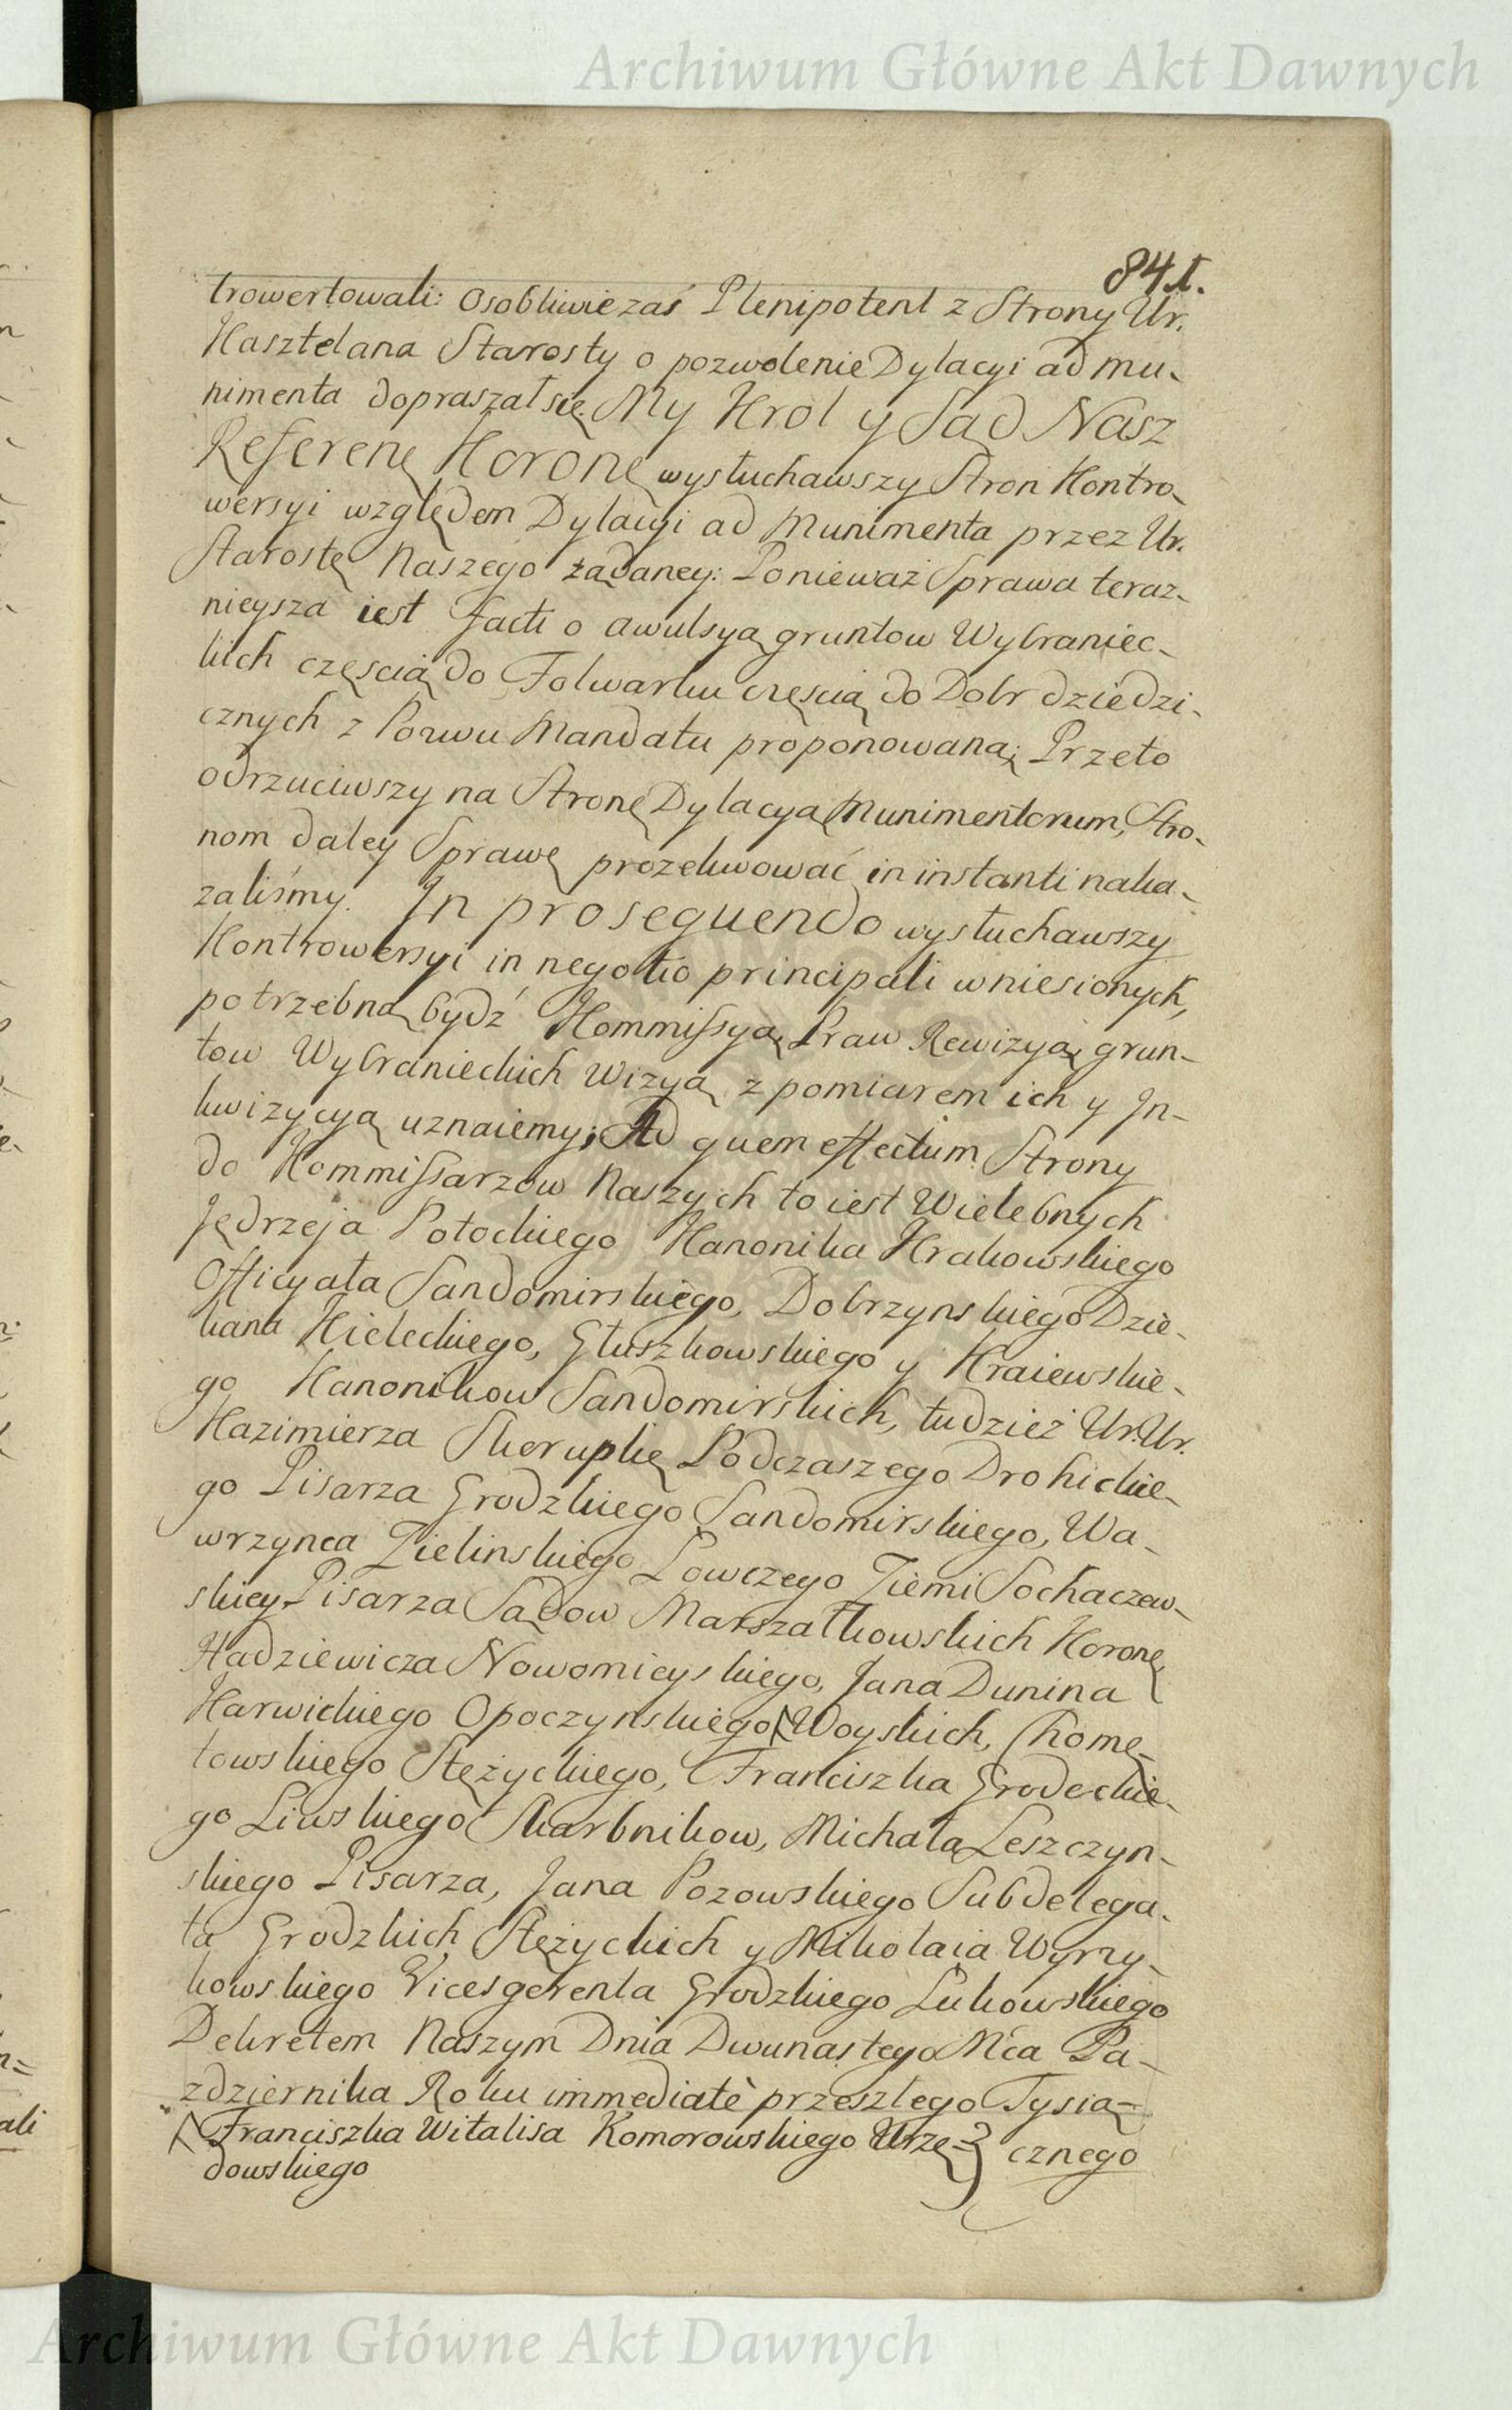 Archiwum Główne Akt Dawnych
841.
trowertowali: Osobliwie zaś Plenipotent z Strony Ur.
Kasztelana Starosty o pozwolenie Dylacyi ad mu-
nimenta dopraszał się. My Krol y Sąd Nasz
Referen҃ Koron҃ wysłuchawszy Stron Kontro-
wersyi względem Dylacyi ad Munimenta przez Ur.
Starostę Naszego żądaney: Ponieważ Sprawa teraz-
nieysza iest facti o awulsyą gruntow Wybraniec-
kich częscią do Folwarku częscią do Dobr dziedzi-
cznych z Pozwu Mandatu proponowana; Przeto
odrzuciwszy na Stronę Dylacyą Munimentorum, Stro-
nom daley Sprawę prozekwować in instanti naka-
zaliśmy. In prosequendo wysłuchawszy
Kontrowersyi in negotio principali wniesionych,
potrzebną bydź Kommissyą, Praw Rewizyą, grun-
tow Wybranieckich Wizyą z pomiarem ich y In-
kwizycyą uznaiemy; Ad quem effectum Strony
do Kommissarzow Naszych to iest Wielebnych
Jędrzeja Potockiego Kanonika Krakowskiego
Officyała Sandomirskiego, Dobrzynskiego Dzie-
kana Kieleckiego, Głuszkowskiego y Kraiewskie-
go Kanonikow Sandomirskich, tudzież Ur. Ur.
Kazimierza Skorupkę Podczaszego Drohickie-
go Pisarza Grodzkiego Sandomirskiego, Wa-
wrzynca Zielinskiego Łowczego Ziemi Sochaczew-
skiey Pisarza Sądow Marszałkowskich Koron҃
Kadziewicza Nowomieyskiego, Jana Dunina
Karwickiego Opoczynskiego Woyskich, Chomę-
towskiego Stężyckiego, Franciszka Grodeckie-
go Liwskiego Skarbnikow, Michała Leszczyn-
skiego Pisarza, Jana Pozowskiego Subdelega-
ta Grodzkich Stężyckich y Mikołaia Wyrzy-
kowskiego Vicesgerenta Grodzkiego Łukowskiego
Dekretem Naszym Dnia Dwunastego Mca Pa-
zdziernika Roku immediatè przeszłego Tysią=
cznego
Franciszka Witalisa Komorowskiego Urzę=
dowskiego
Archiwum Główne Akt Dawnych